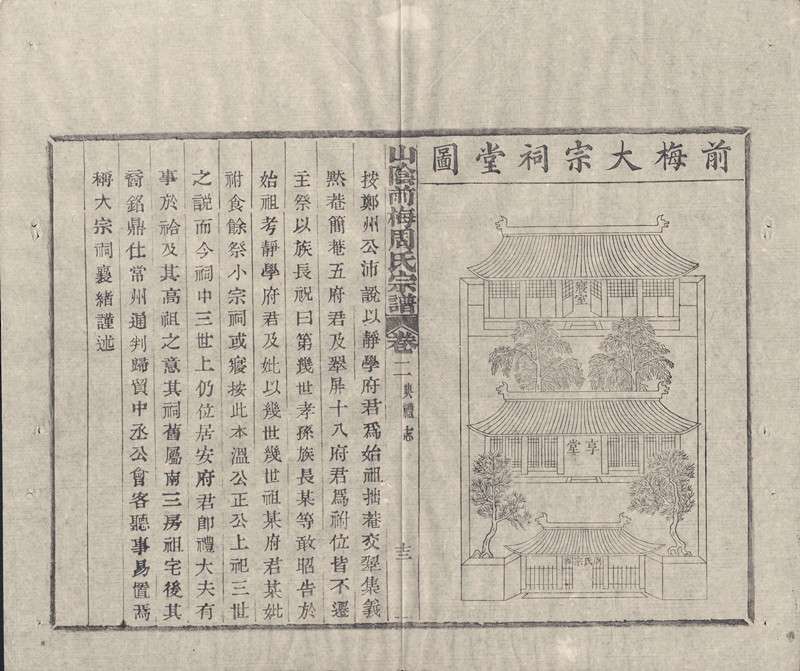 前梅大宗祠堂圖
寢室
享堂
周氏宗祠
山陰前梅周氏宗譜 卷二 典禮志 十三
按鄭州公沛說以靜學府君爲始祖拙菴交翠集義
黙菴簡菴五府君及翠屏十八府君爲祔位皆不遷
主祭以族長祝曰第幾世孝孫族長某等敢昭告於
始祖考靜學府君及妣以幾世幾世祖某府君某妣
祔食餘祭小宗祠或寢按此本溫公正公上祀三世
之說而今祠中三世上仍位居安府君卽禮大夫有
事於祫及其高祖之意其祠舊屬南三房祖宅後其
裔銘鼎仕常州通判歸貿中丞公會客聽事易置焉
稱大宗祠襄緒謹述